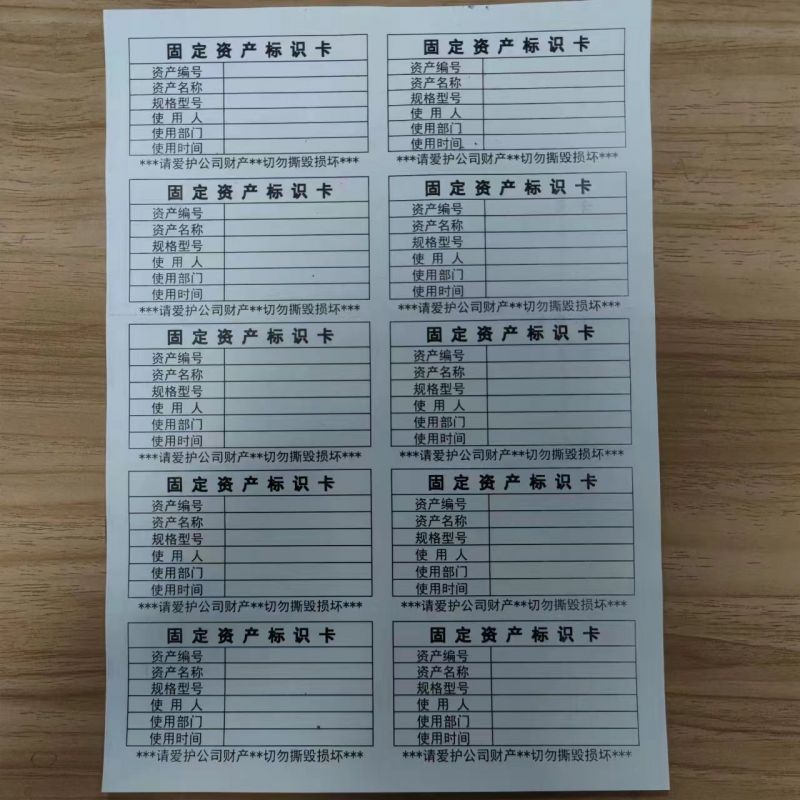 固定资产标识卡
资产编号
资产名称
规格型号
使用人
使用部门
使用时间
***请爱护公司财产**切勿撕毁损坏***
固定资产标识卡
资产编号
资产名称
规格型号
使用人
使用部门
使用时间
***请爱护公司财产**切勿撕毁损坏***
固定资产标识卡
资产编号
资产名称
规格型号
使用人
使用部门
使用时间
***请爱护公司财产**切勿撕毁损坏***
固定资产标识卡
资产编号
资产名称
规格型号
使用人
使用部门
使用时间
***请爱护公司财产**切勿撕毁损坏***
固定资产标识卡
资产编号
资产名称
规格型号
使用人
使用部门
使用时间
***请爱护公司财产**切勿撕毁损坏***
固定资产标识卡
资产编号
资产名称
规格型号
使用人
使用部门
使用时间
***请爱护公司财产**切勿撕毁损坏***
固定资产标识卡
资产编号
资产名称
规格型号
使用人
使用部门
使用时间
***请爱护公司财产**切勿撕毁损坏***
固定资产标识卡
资产编号
资产名称
规格型号
使用人
使用部门
使用时间
***请爱护公司财产**切勿撕毁损坏***
固定资产标识卡
资产编号
资产名称
规格型号
使用人
使用部门
使用时间
***请爱护公司财产**切勿撕毁损坏***
固定资产标识卡
资产编号
资产名称
规格型号
使用人
使用部门
使用时间
***请爱护公司财产**切勿撕毁损坏***